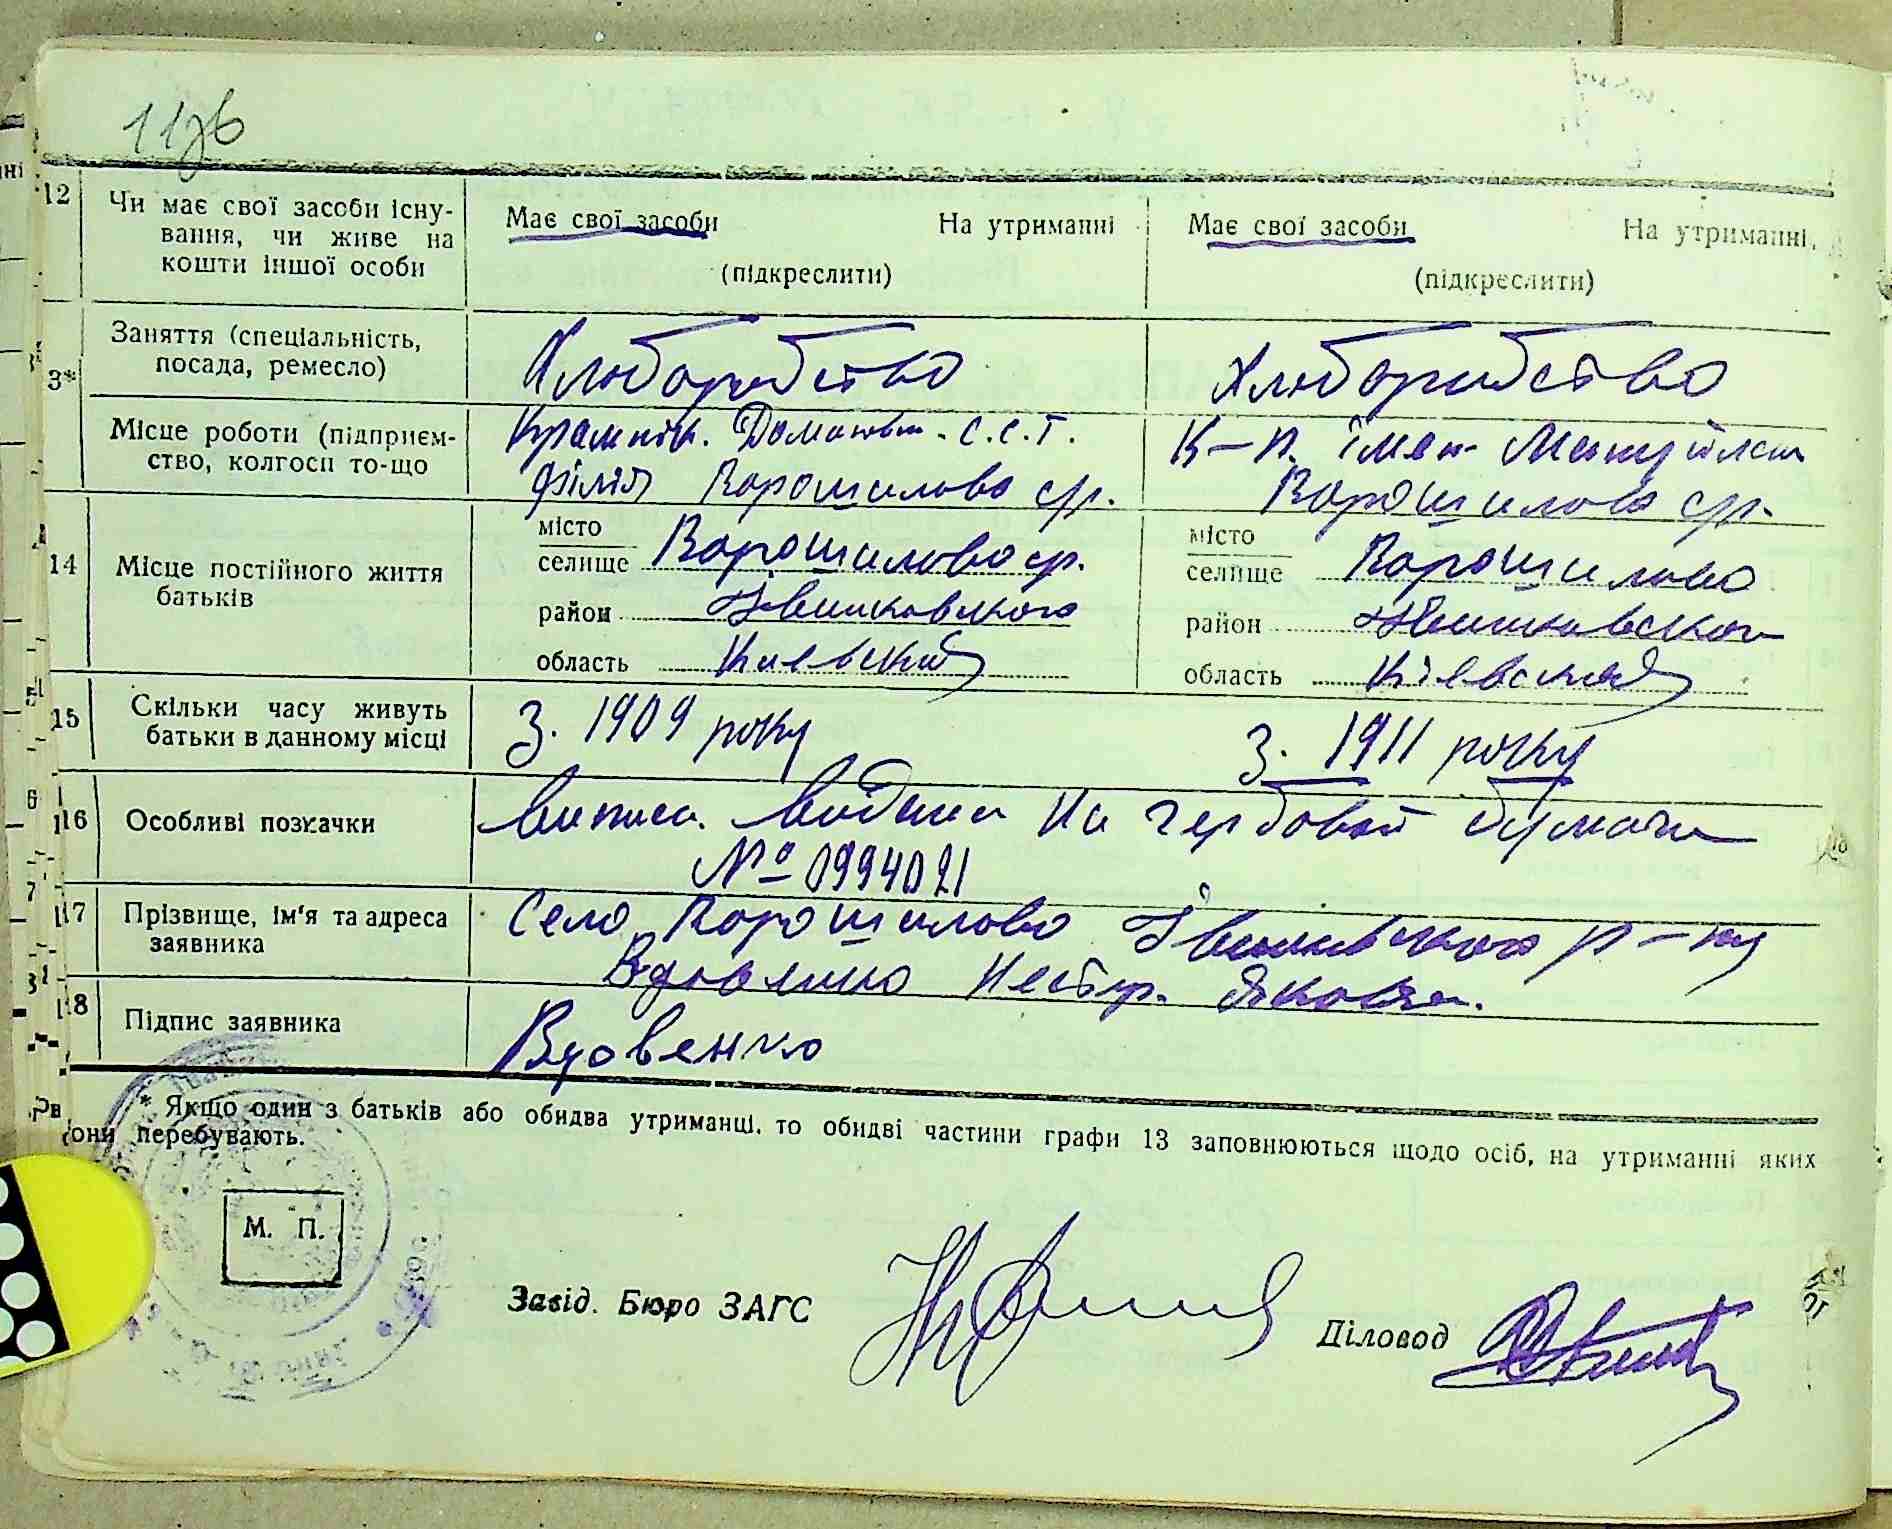 12 Чи має свої засоби існу-
вання, чи живе на
кошти іншої особи
Має свої засоби На утриманні
(підкреслити)
Має свої засоби На утриманні.
(підкреслити)
3* Заняття (спеціальність,
посада, ремесло)
Хлюборобство
Хлюборобство
Місце роботи (підприєм-
ство, колгосп то-що
с.с.т.
філія Ворошилово ср.
К-п. імен.
Ворошилово ср.
14 Місце постійного життя
батьків
місто
селище Ворошилово ср.
район
область Киевской
місто
селище Ворошилово
район
область Кіевской
15 Скільки часу живуть
батьки в данному місці
З. 1909 року
З. 1911 року
16 Особливі позначки
видана на гербовой бумаги
№ 0994021
17 Прізвище, ім'я та адреса
заявника
Село Ворошилово р-ну
Вдовенко Нестер.
18 Підпис заявника
Вдовенко
* Якщо один з батьків або обидва утриманці, то обидві частини графи 13 заповнюються щодо осіб, на утриманні яких
вони перебувають.
М. П.
Завід. Бюро ЗАГС
Діловод